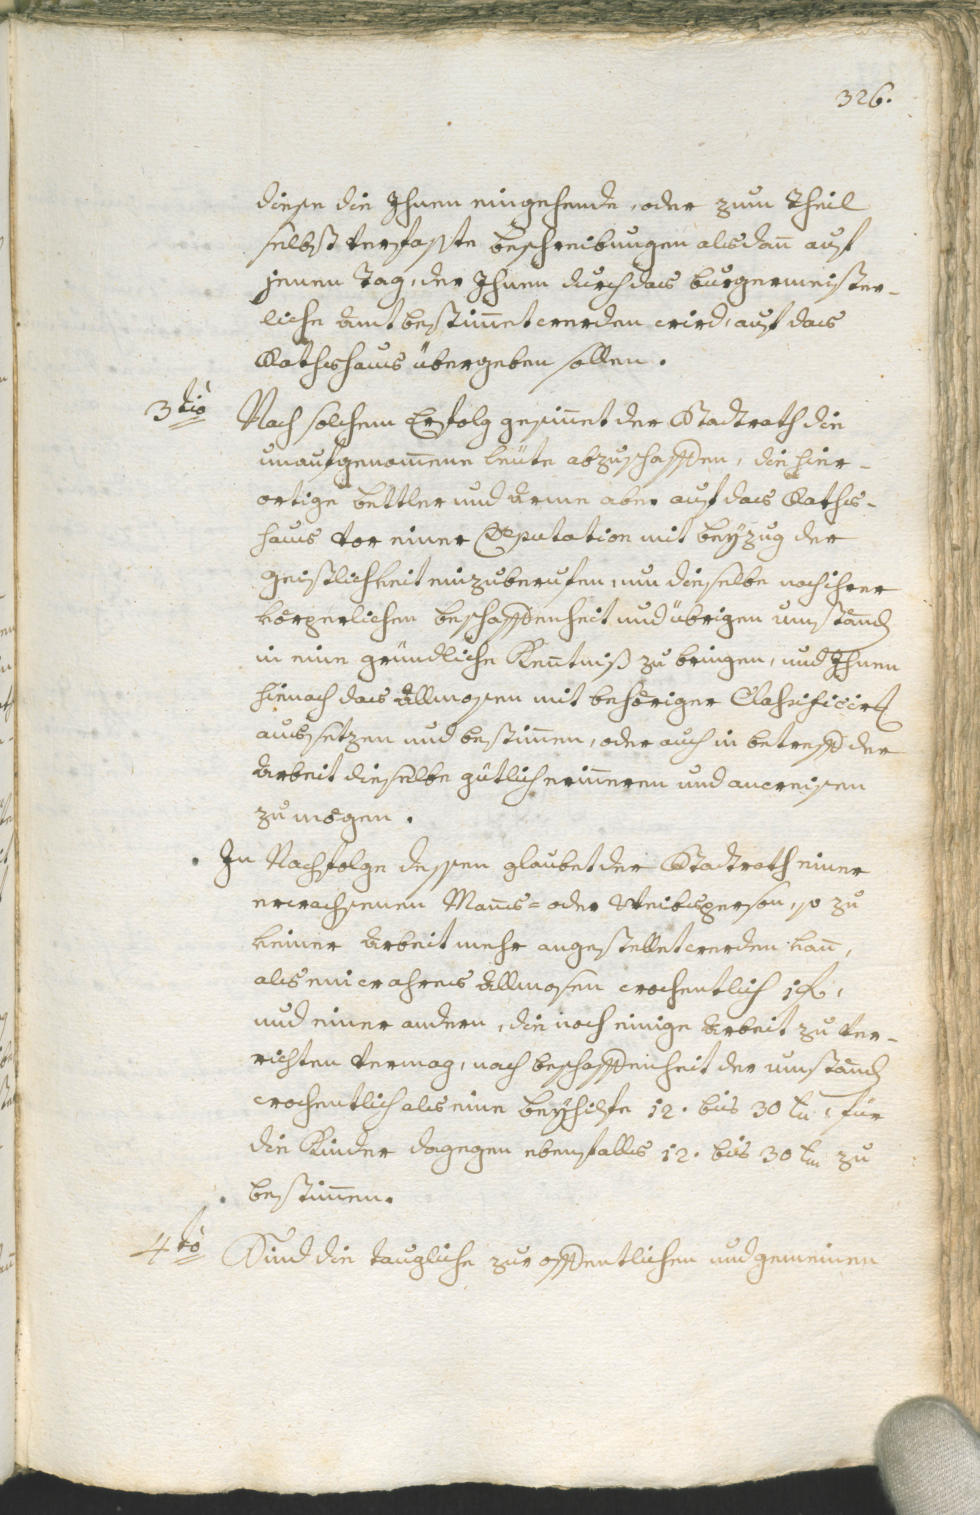 326.
diese die Ihnen eingehende, oder zum Theil
selbst verfaßte beschreibungen alsdan̄ auf
jenen Tag, der Ihnen durch das burgermeister-
liche Amt bestim̄et werden wird, auf das
Rathshaus übergeben sollen.
3tiò Nach solchem Erfolg gesin̄et der Stadtrath die
unaufgenom̄ene leüte abzuschaffen, die hier-
ortige bettler und Arme aber auf das Raths-
haus vor einer Deputation mit beÿzug der
geistlichkeit einzuberufen, um dieselbe nach ihrer
körperlichen beschaffenheit und übrigen umständ
in eine gründliche Ken̄tniß zu bringen, und Ihnen
hienach das Allmosen mit behöriger Classificirg
aussetzen und bestim̄en, oder auch in betreff der
Arbeit dieselbe gütlich erin̄eren und anweisen
zu mögen.
In Nachfolge dessen glaubet der Stadtrath einer
erwachsenen Man̄s- oder Weibsperson, so zu
keiner Arbeit mehr angestellet werden kan̄,
als ein wahres Allmosen wochentlich 1 f.,
und einer andern, die noch einige Arbeit zu ver-
richten vermag, nach beschaffenheit der umständ
wochentlich als eine beÿhilfe 12. bis 30 kr, für
die Kinder dagegen ebenfalls 12. bis 30 kr zu
bestim̄en.
4tò Sind die taugliche zur offentlichen und gemeinen